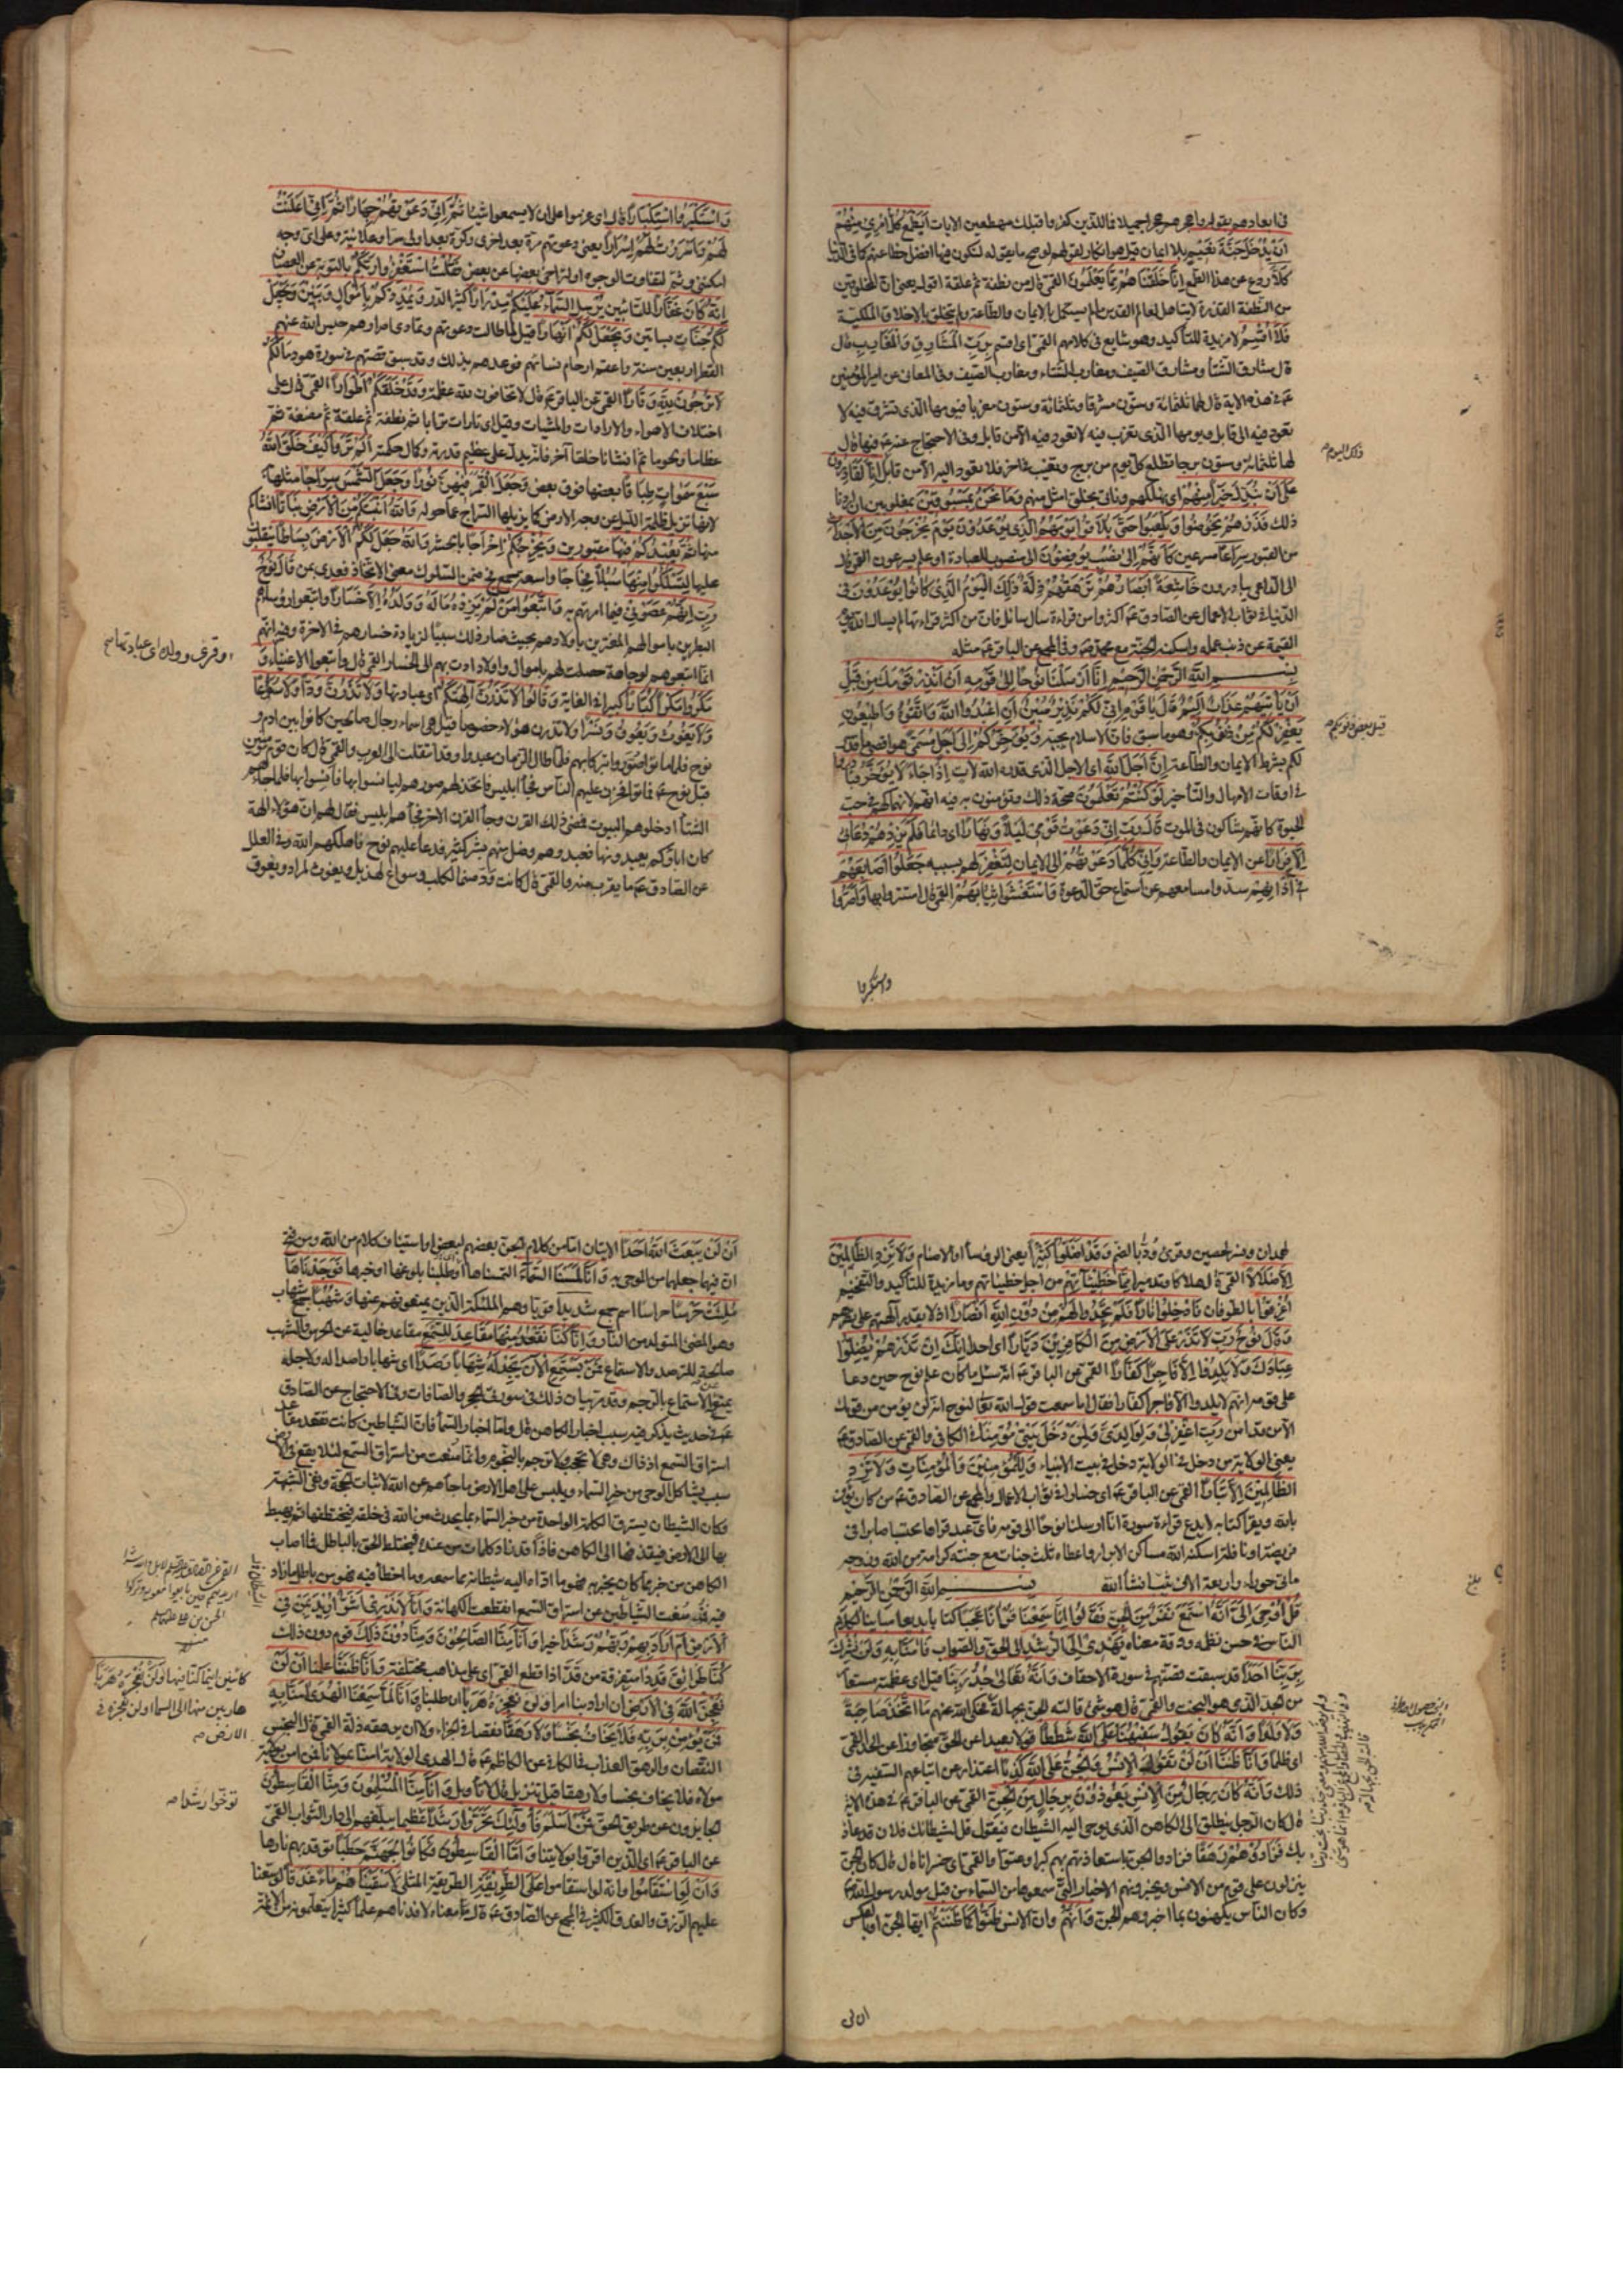 في ابعادهم بقوله واهجرهم هجرا جميلا فمال الذين كفروا قبلك مهطعين الايات أَيَطْمَعُ كُلُّ امْرِئٍ مِنْهُمْ
أَنْ يُدْخَلَ جَنَّةَ نَعِيمٍ بلا ايمان قيل هو انكار لقولهم لو صح ما يقوله لنكون فيها افضل حظا منهم كما في الدنيا
كَلَّا ردع عن هذا الطمع إِنَّا خَلَقْنَاهُمْ مِمَّا يَعْلَمُونَ القمي قال من نطفة ثم علقة اقول يعني ان المخلوق من
من النطفة القذرة لا يتاهل لعالم القدس ما لم يستكمل بالايمان والطاعة ولم يتخلق بالاخلاق الملكية
فَلَا أُقْسِمُ لا مزيدة للتاكيد وهو شايع في كلامهم القمي اي اقسم بِرَبِّ الْمَشَارِقِ وَالْمَغَارِبِ قال
قال مشارق الشتا ومشارق الصيف ومغارب الشتاء ومغارب الصيف وفي المعاني عن امير المؤمنين
ع في هذه الاية قال لها ثلثمائة وستون مشرقا وثلثمائة وستون مغربا فيومها الذي تشرق فيه لا
تعود فيه الى قابل ويومها الذي تغرب فيه لا تعود فيه الا من قابل وفي الاحتجاج عنه ع فيها قال
لها ثلثمائة وستون برجا تطلع كل يوم من برج وتغيب في اخر فلا تعود اليه الا من قابل إِنَّا لَقَادِرُونَ
عَلَى أَنْ نُبَدِّلَ خَيْرًا مِنْهُمْ اي نهلكهم وناتي بخلق امثل منهم وَمَا نَحْنُ بِمَسْبُوقِينَ بمغلوبين ان اردنا
ذلك فَذَرْهُمْ يَخُوضُوا وَيَلْعَبُوا حَتَّى يُلَاقُوا يَوْمَهُمُ الَّذِي يُوعَدُونَ يَوْمَ يَخْرُجُونَ مِنَ الْأَجْدَاثِ
من القبور سِرَاعًا مسرعين كَأَنَّهُمْ إِلَى نُصُبٍ يُوفِضُونَ الى منصوب للعبادة او علم يسرعون القمي قال
الى الداعي يبادرون خَاشِعَةً أَبْصَارُهُمْ تَرْهَقُهُمْ ذِلَّةٌ ذَلِكَ الْيَوْمُ الَّذِي كَانُوا يُوعَدُونَ في
الدنيا في ثواب الاعمال عن الصادق ع اكثروا من قراءة سال سائل فان من اكثر قراءتها لم يساله الله يوم
القيمة عن ذنب عمله واسكنه الجنة مع محمد ص وفي المجمع عن الباقر ع مثله
بِسْمِ اللَّهِ الرَّحْمَنِ الرَّحِيمِ إِنَّا أَرْسَلْنَا نُوحًا إِلَى قَوْمِهِ أَنْ أَنْذِرْ قَوْمَكَ مِنْ قَبْلِ
أَنْ يَأْتِيَهُمْ عَذَابٌ أَلِيمٌ قَالَ يَا قَوْمِ إِنِّي لَكُمْ نَذِيرٌ مُبِينٌ أَنِ اعْبُدُوا اللَّهَ وَاتَّقُوهُ وَأَطِيعُونِ
يَغْفِرْ لَكُمْ مِنْ ذُنُوبِكُمْ وهو ما سبق فان الاسلام يجبه وَيُؤَخِّرْكُمْ إِلَى أَجَلٍ مُسَمًّى هو اقصى ما قدر
لكم بشرط الايمان والطاعة إِنَّ أَجَلَ اللَّهِ اي الاجل الذي قدره الله لات إِذَا جَاءَ لَا يُؤَخَّرُ فبادروا
في اوقات الامهال والتأخير لَوْ كُنْتُمْ تَعْلَمُونَ صحة ذلك وتؤمنون به فيه انهم لانهماكهم في حب
الحيوة كانهم شاكون في الموت قَالَ رَبِّ إِنِّي دَعَوْتُ قَوْمِي لَيْلًا وَنَهَارًا اي دائما فَلَمْ يَزِدْهُمْ دُعَائِي
إِلَّا فِرَارًا عن الايمان والطاعة وَإِنِّي كُلَّمَا دَعَوْتُهُمْ الى الايمان لِتَغْفِرَ لَهُمْ بسببه جَعَلُوا أَصَابِعَهُمْ
فِي آذَانِهِمْ سدوا مسامعهم عن استماع حق الدعوة وَاسْتَغْشَوْا ثِيَابَهُمْ القمي قال استتروا بها وَأَصَرُّوا
وذلك اليوم ص
قيل بعض ذنوبكم ص
واستكبروا
وَاسْتَكْبَرُوا اسْتِكْبَارًا قال اي عزموا على ان لا يسمعوا شيئا ثُمَّ إِنِّي دَعَوْتُهُمْ جِهَارًا ثُمَّ إِنِّي أَعْلَنْتُ
لَهُمْ وَأَسْرَرْتُ لَهُمْ إِسْرَارًا يعني دعوتهم مرة بعد اخرى وكرة بعد اولى سرا وعلانية وعلى اي وجه
امكنني وثم لتفاوت الوجوه او لتراخي بعضها عن بعض فَقُلْتُ اسْتَغْفِرُوا رَبَّكُمْ بالتوبة عن العصيان
إِنَّهُ كَانَ غَفَّارًا للتائبين يُرْسِلِ السَّمَاءَ عَلَيْكُمْ مِدْرَارًا كثير الدر وَيُمْدِدْكُمْ بِأَمْوَالٍ وَبَنِينَ وَيَجْعَلْ
لَكُمْ جَنَّاتٍ بساتين وَيَجْعَلْ لَكُمْ أَنْهَارًا قيل لما طالت دعوتهم وتمادى اصرارهم حبس الله عنهم
القطر اربعين سنة واعقم ارحام نسائهم فوعدهم بذلك وقد سبق قصتهم في سورة هود مَا لَكُمْ
لَا تَرْجُونَ لِلَّهِ وَقَارًا القمي عن الباقر ع قال لا تخافون لله عظمة وَقَدْ خَلَقَكُمْ أَطْوَارًا القمي قال على
اختلاف الاهواء والارادات والمشيات وقيل اي تارات ترابا ثم نطفة ثم علقة ثم مضغة ثم
عظاما ولحوما ثم انشانا خلقا آخر فانه يدل على عظيم قدرته وكمال حكمته أَلَمْ تَرَوْا كَيْفَ خَلَقَ اللَّهُ
سَبْعَ سَمَوَاتٍ طِبَاقًا بعضها فوق بعض وَجَعَلَ الْقَمَرَ فِيهِنَّ نُورًا وَجَعَلَ الشَّمْسَ سِرَاجًا مثلها به
لانها تزيل ظلمة الليل عن وجه الارض كما يزيلها السراج عما حوله وَاللَّهُ أَنْبَتَكُمْ مِنَ الْأَرْضِ نَبَاتًا انشاكم
منها ثُمَّ يُعِيدُكُمْ فِيهَا مقبورين وَيُخْرِجُكُمْ إِخْرَاجًا بالحشر وَاللَّهُ جَعَلَ لَكُمُ الْأَرْضَ بِسَاطًا يتقلبون
عليها لِتَسْلُكُوا مِنْهَا سُبُلًا فِجَاجًا واسعة جمع فج ضمن السلوك معنى الاتخاذ فعدي بمن قَالَ نُوحٌ
رَبِّ إِنَّهُمْ عَصَوْنِي فيما امرتهم به وَاتَّبَعُوا مَنْ لَمْ يَزِدْهُ مَالُهُ وَوَلَدُهُ إِلَّا خَسَارًا واتبعوا رؤساءهم
البطرين باموالهم المغترين باولادهم بحيث صار ذلك سببا لزيادة خسارهم في الاخرة وفيه انهم
انما اتبعوهم لوجاهة حصلت لهم باموال واولاد ادت بهم الى الخسار القمي قال واتبعوا الاغنياء وَ
مَكَرُوا مَكْرًا كُبَّارًا كبيرا في الغاية وَقَالُوا لَا تَذَرُنَّ آلِهَتَكُمْ اي عبادتها وَلَا تَذَرُنَّ وَدًّا وَلَا سُوَاعًا
وَلَا يَغُوثَ وَيَعُوقَ وَنَسْرًا ولا تذرن هؤلاء خصوصا قيل هي اسماء رجال صالحين كانوا بين ادم و
نوح فلما ماتوا صوروا تبركا بهم فلما طال الزمان عبدوا وقد انتقلت الى العرب والقمي قال كان قوم مؤمنين
قبل نوح ع فماتوا فحزن عليهم الناس فجاء ابليس فاتخذ لهم صورهم ليانسوا بها فانسوا بها فلما جاءهم
الشتاء ادخلوهم البيوت فمضى ذلك القرن وجاء القرن الاخر فجاءهم ابليس فقال لهم ان هؤلاء الهة
كان اباؤكم يعبدونها فعبدوهم وضل منهم بشر كثير فدعا عليهم نوح فاهلكهم الله وفي العلل
عن الصادق ع ما يقرب منه والقمي قال كانت ود صنما لكلب وسواع لهذيل ويغوث لمراد ويعوق
وقرئ وولده اي عبادتها ص
لهمدان ونسر لحصين وقرئ ودا بالضم وَقَدْ أَضَلُّوا كَثِيرًا يعني الرؤساء او الاصنام وَلَا تَزِدِ الظَّالِمِينَ
إِلَّا ضَلَالًا القمي قال هلاكا وتدميرا مِمَّا خَطِيئَاتِهِمْ من اجل خطيئاتهم وما مزيدة للتأكيد والتفخيم
أُغْرِقُوا بالطوفان فَأُدْخِلُوا نَارًا فَلَمْ يَجِدُوا لَهُمْ مِنْ دُونِ اللَّهِ أَنْصَارًا اذ لا يقدر آلهتهم على نصرهم
وَقَالَ نُوحٌ رَبِّ لَا تَذَرْ عَلَى الْأَرْضِ مِنَ الْكَافِرِينَ دَيَّارًا اي احدا إِنَّكَ إِنْ تَذَرْهُمْ يُضِلُّوا
عِبَادَكَ وَلَا يَلِدُوا إِلَّا فَاجِرًا كَفَّارًا القمي عن الباقر ع انه سئل ما كان علم نوح حين دعا
على قومه انهم لا يلدوا الا فاجرا كفارا فقال اما سمعت قول الله تعالى لنوح انه لن يؤمن من قومك
الا من قد آمن رَبِّ اغْفِرْ لِي وَلِوَالِدَيَّ وَلِمَنْ دَخَلَ بَيْتِيَ مُؤْمِنًا في الكافي والقمي عن الصادق ع
يعني الولاية من دخل في الولاية دخل في بيت الانبياء وَلِلْمُؤْمِنِينَ وَالْمُؤْمِنَاتِ وَلَا تَزِدِ
الظَّالِمِينَ إِلَّا تَبَارًا القمي عن الباقر ع اي خسارا في ثواب الاعمال والمجمع عن الصادق ع من كان يؤمن
بالله ويقرأ كتابه لا يدع قراءة سورة انا ارسلنا نوحا الى قومه فاي عبد قراها محتسبا صابرا في
فريضة او نافلة اسكنه الله مساكن الابرار واعطاه ثلث جنات مع جنته كرامة من الله وزوجه
مائتي حوراء واربعة الاف ثيب انشاء الله بِسْمِ اللَّهِ الرَّحْمَنِ الرَّحِيمِ
قُلْ أُوحِيَ إِلَيَّ أَنَّهُ اسْتَمَعَ نَفَرٌ مِنَ الْجِنِّ فَقَالُوا إِنَّا سَمِعْنَا قُرْآنًا عَجَبًا كتابا بديعا مباينا لكلام
الناس في حسن نظمه ودقة معناه يَهْدِي إِلَى الرُّشْدِ الى الحق والصواب فَآمَنَّا بِهِ وَلَنْ نُشْرِكَ
بِرَبِّنَا أَحَدًا قد سبقت قصتهم في سورة الاحقاف وَأَنَّهُ تَعَالَى جَدُّ رَبِّنَا قيل اي عظمته مستعار
من الجد الذي هو البخت والقمي قال هو شئ قالته الجن بجهالة فحكى الله عنهم مَا اتَّخَذَ صَاحِبَةً
وَلَا وَلَدًا وَأَنَّهُ كَانَ يَقُولُ سَفِيهُنَا عَلَى اللَّهِ شَطَطًا قولا بعيدا عن الحق مجاوزا عن الحد القمي
اي ظلما وَأَنَّا ظَنَنَّا أَنْ لَنْ تَقُولَ الْإِنْسُ وَالْجِنُّ عَلَى اللَّهِ كَذِبًا اعتذار عن اتباعهم السفيه في
ذلك وَأَنَّهُ كَانَ رِجَالٌ مِنَ الْإِنْسِ يَعُوذُونَ بِرِجَالٍ مِنَ الْجِنِّ القمي عن الباقر ع في هذه الاية
قال كان الرجل ينطلق الى الكاهن الذي يوحي اليه الشيطان فيقول قل لشيطانك فلان قد عاذ
بك فَزَادُوهُمْ رَهَقًا فزادوا الجن باستعاذتهم بهم كبرا وعتوا والقمي اي خسرانا قال قال كان الجن
ينزلون على قوم من الانس ويخبرونهم الاخبار التي سمعوها من السماء من قبل مولد رسول الله ص
وكان الناس يكهنون بما اخبروهم الجن وَأَنَّهُمْ وان الانس ظَنُّوا كَمَا ظَنَنْتُمْ ايها الجن او بالعكس
بلغ
ان لن
أَنْ لَنْ يَبْعَثَ اللَّهُ أَحَدًا الايتان اما من كلام الجن بعضهم لبعض او استيناف كلام من الله ومن فتح
ان فيها جعلها من الموحى به وَأَنَّا لَمَسْنَا السَّمَاءَ التمسناها اي طلبنا بلوغها او خبرها فَوَجَدْنَاهَا
مُلِئَتْ حَرَسًا حراسا اسم جمع شَدِيدًا قويا وهم الملئكة الذين يمنعونهم عنها وَشُهُبًا جمع شهاب
وهو المضئ المتولد من النار وَأَنَّا كُنَّا نَقْعُدُ مِنْهَا مَقَاعِدَ لِلسَّمْعِ مقاعد خالية عن الحرس والشهب
صالحة للترصد والاستماع فَمَنْ يَسْتَمِعِ الْآنَ يَجِدْ لَهُ شِهَابًا رَصَدًا اي شهابا راصدا له ولاجله
يمنعه عن الاستماع بالرجم وقد مر بيان ذلك في سورتي الحجر والصافات وفي الاحتجاج عن الصادق
ع في حديث يذكر فيه سبب اخبار الكاهن قال واما اخبار السماء فان الشياطين كانت تقعد مقاعد
استراق السمع اذ ذاك وهي لا تحجب ولا ترجم بالنجوم وانما منعت من استراق السمع لئلا يقع في الارض
سبب يشاكل الوحي من خبر السماء ويلبس على اهل الارض ما جاءهم عن الله لاثبات الحجة ونفي الشبهة
وكان الشيطان يسترق الكلمة الواحدة من خبر السماء بما يحدث من الله في خلقه فيختطفها ثم يهبط
بها الى الارض فيقذفها الى الكاهن فاذا قد زاد كلمات من عنده فيختلط الحق بالباطل فما اصاب
الكاهن من خبر مما كان يخبر به فهو ما اداه اليه شيطانه مما سمعه وما اخطأ فيه فهو من باطل ما زاد
فيه فمذ منعت الشياطين عن استراق السمع انقطعت الكهانة وَأَنَّا لَا نَدْرِي أَشَرٌّ أُرِيدَ بِمَنْ فِي
الْأَرْضِ أَمْ أَرَادَ بِهِمْ رَبُّهُمْ رَشَدًا خيرا وَأَنَّا مِنَّا الصَّالِحُونَ وَمِنَّا دُونَ ذَلِكَ قوم دون ذلك
كُنَّا طَرَائِقَ قِدَدًا متفرقة من قد اذا قطع القمي اي على مذاهب مختلفة وَأَنَّا ظَنَنَّا علمنا أَنْ لَنْ
نُعْجِزَ اللَّهَ فِي الْأَرْضِ ان اراد بنا امرا وَلَنْ نُعْجِزَهُ هَرَبًا ان طلبنا وَأَنَّا لَمَّا سَمِعْنَا الْهُدَى آمَنَّا بِهِ
فَمَنْ يُؤْمِنْ بِرَبِّهِ فَلَا يَخَافُ بَخْسًا وَلَا رَهَقًا نقصا في الجزاء ولا ان يرهقه ذلة القمي قال البخس
النقصان والرهق العذاب في الكافي عن الكاظم ع قال الهدى الولاية امنا بمولانا فمن امن بولاية
مولاه فلا يخاف بخسا ولا رهقا قيل تنزيل قال لا تأويل وَأَنَّا مِنَّا الْمُسْلِمُونَ وَمِنَّا الْقَاسِطُونَ
الجايرون عن طريق الحق فَمَنْ أَسْلَمَ فَأُولَئِكَ تَحَرَّوْا رَشَدًا عظيما يبلغهم الى دار الثواب القمي
عن الباقر ع اي الذين اقروا بولايتنا وَأَمَّا الْقَاسِطُونَ فَكَانُوا لِجَهَنَّمَ حَطَبًا توقد بهم نارها
وَأَنْ لَوِ اسْتَقَامُوا وانه لو استقاموا عَلَى الطَّرِيقَةِ الطريقة المثلى لَأَسْقَيْنَاهُمْ مَاءً غَدَقًا لوسعنا
عليهم الرزق والغدق الكثير في المجمع عن الصادق ع قال معناه لافدناهم علما كثيرا يتعلمونه من الائمة
كائنين اينما كنا فيها وَلَنْ نُعْجِزَهُ هَرَبًا
هاربين منها الى السماء او لن نعجزه في
الارض ص
توخوا رشدا ص